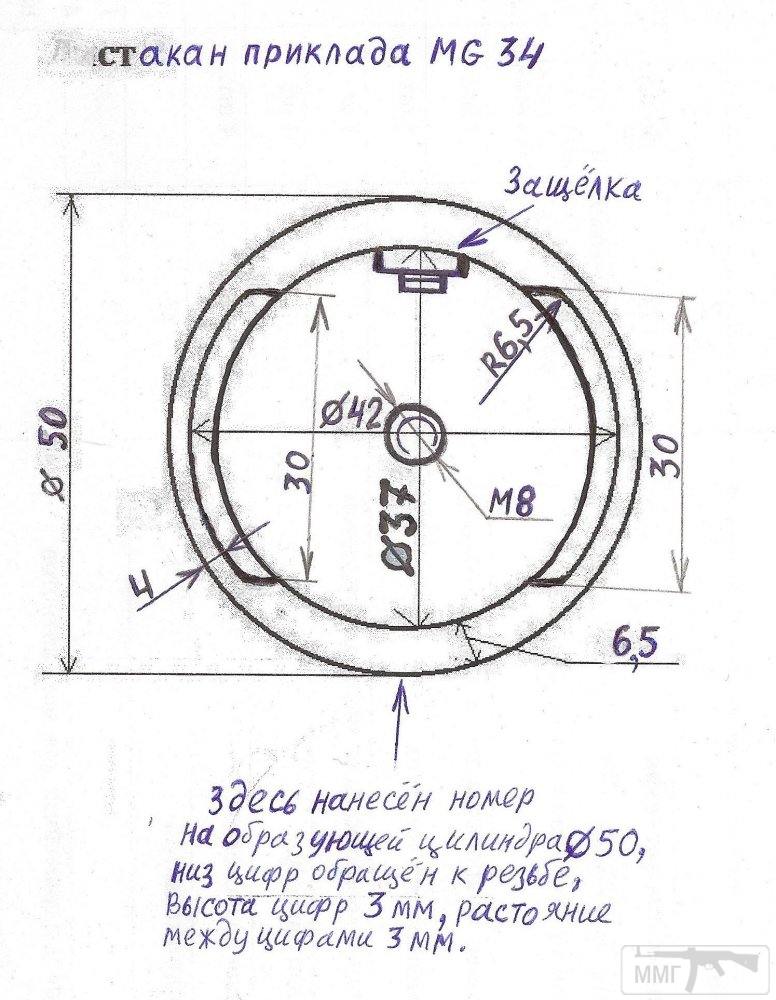 стакан приклада MG 34
Защёлка
R6,5
Ø 50
Ø42
30
30
Ø37
M8
4
6,5
Здесь нанесён номер
на образующей цилиндра Ø50,
низ цифр обращён к резьбе,
высота цифр 3 мм, растояние
между цифами 3 мм.
ММГ